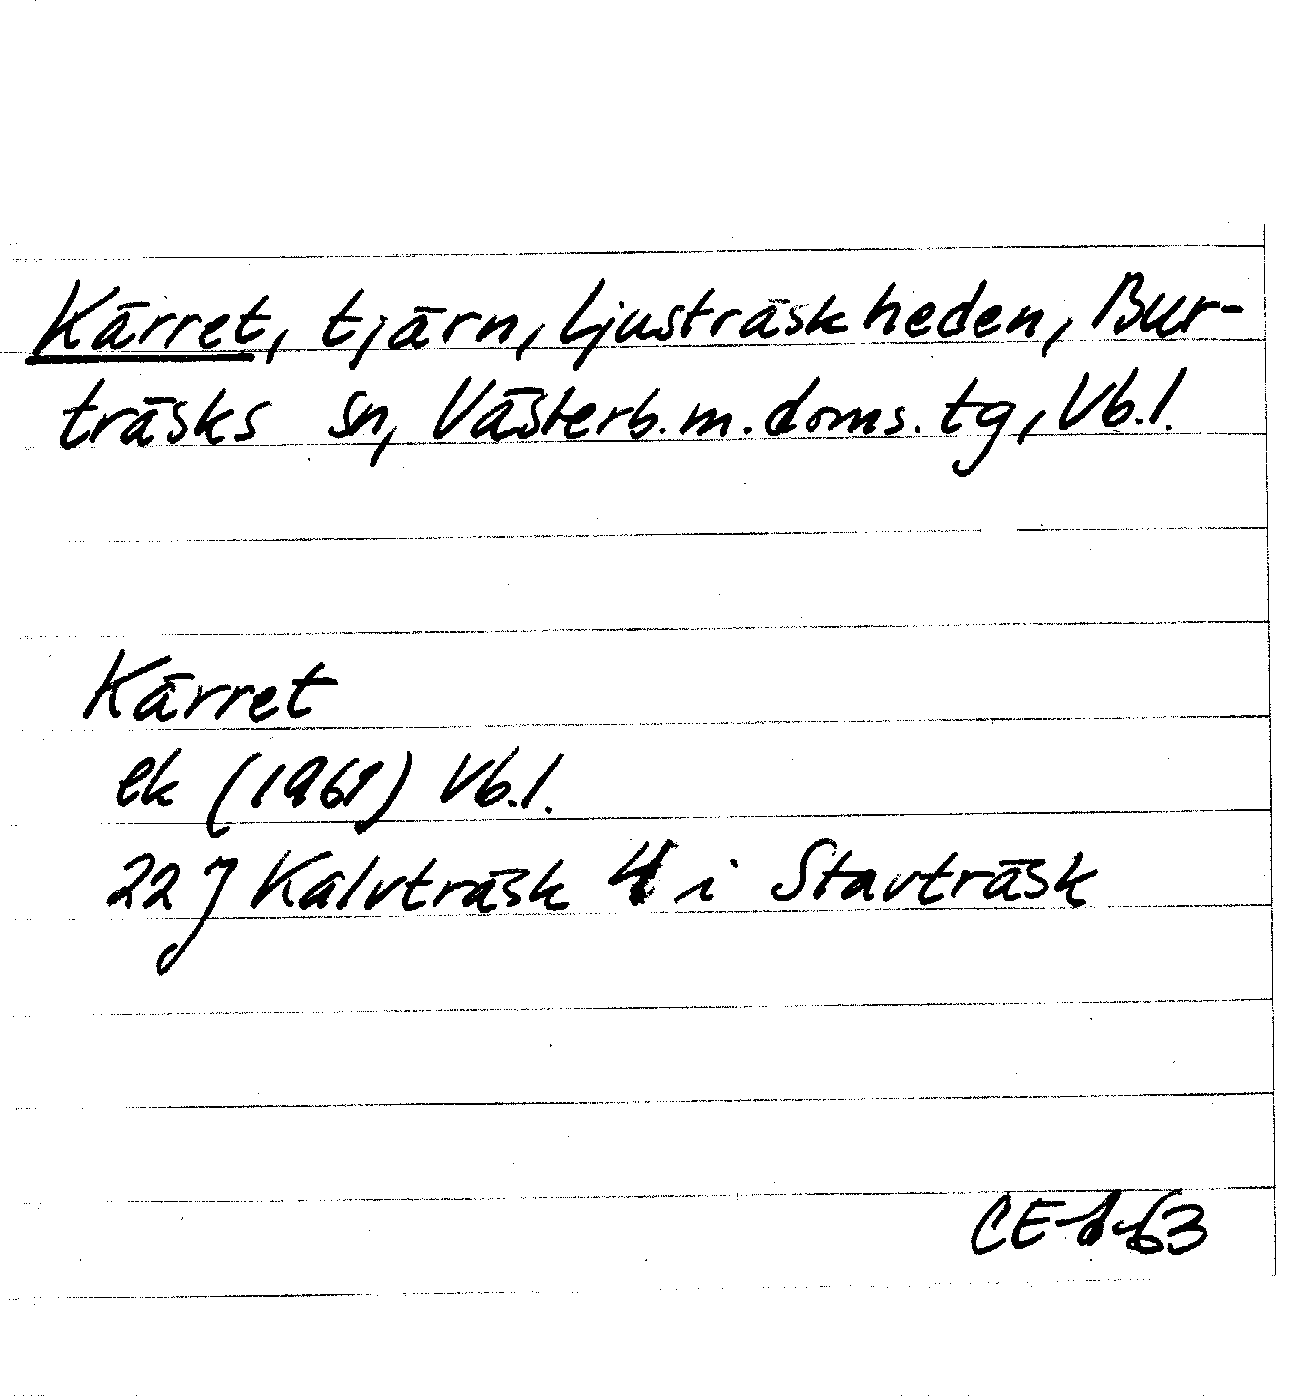 Kärret, tjärn, Ljusträskheden, Bur-
träsks sn, Västerb.m.doms.tg, Vb.l.
Kärret
ek (1961) Vb.l.
22 J Kalvträsk 4 i Stavträsk